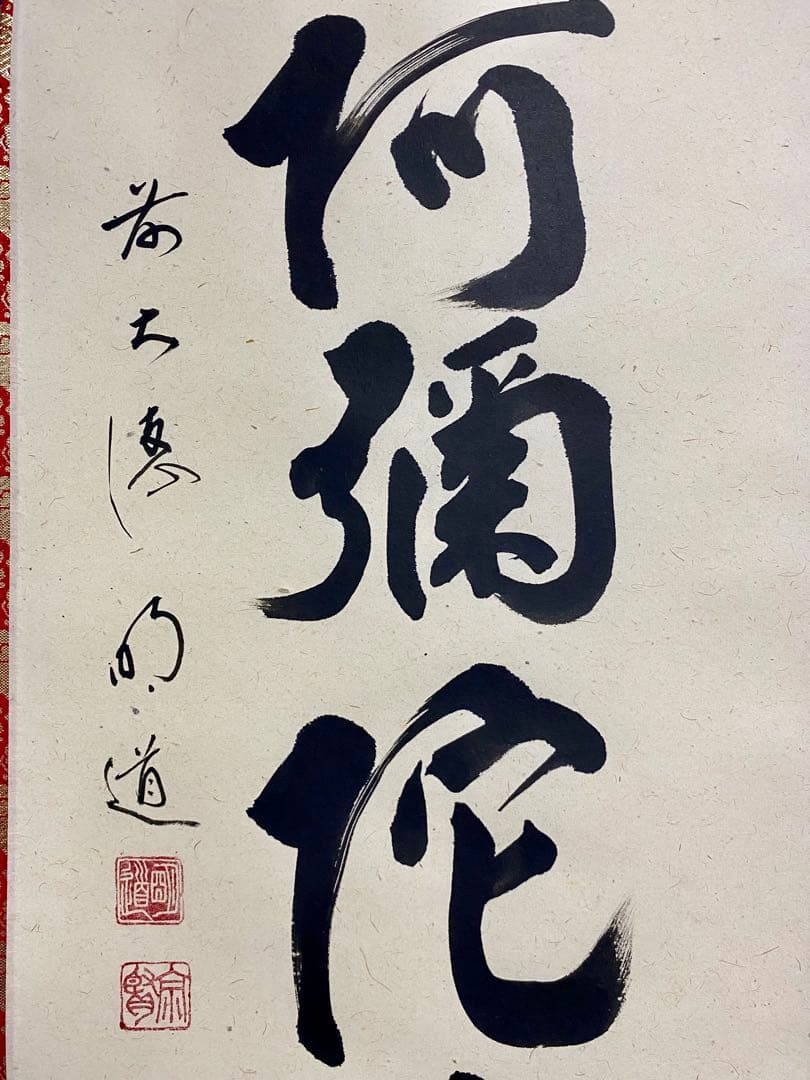 阿彌陀
前大徳明道
明道